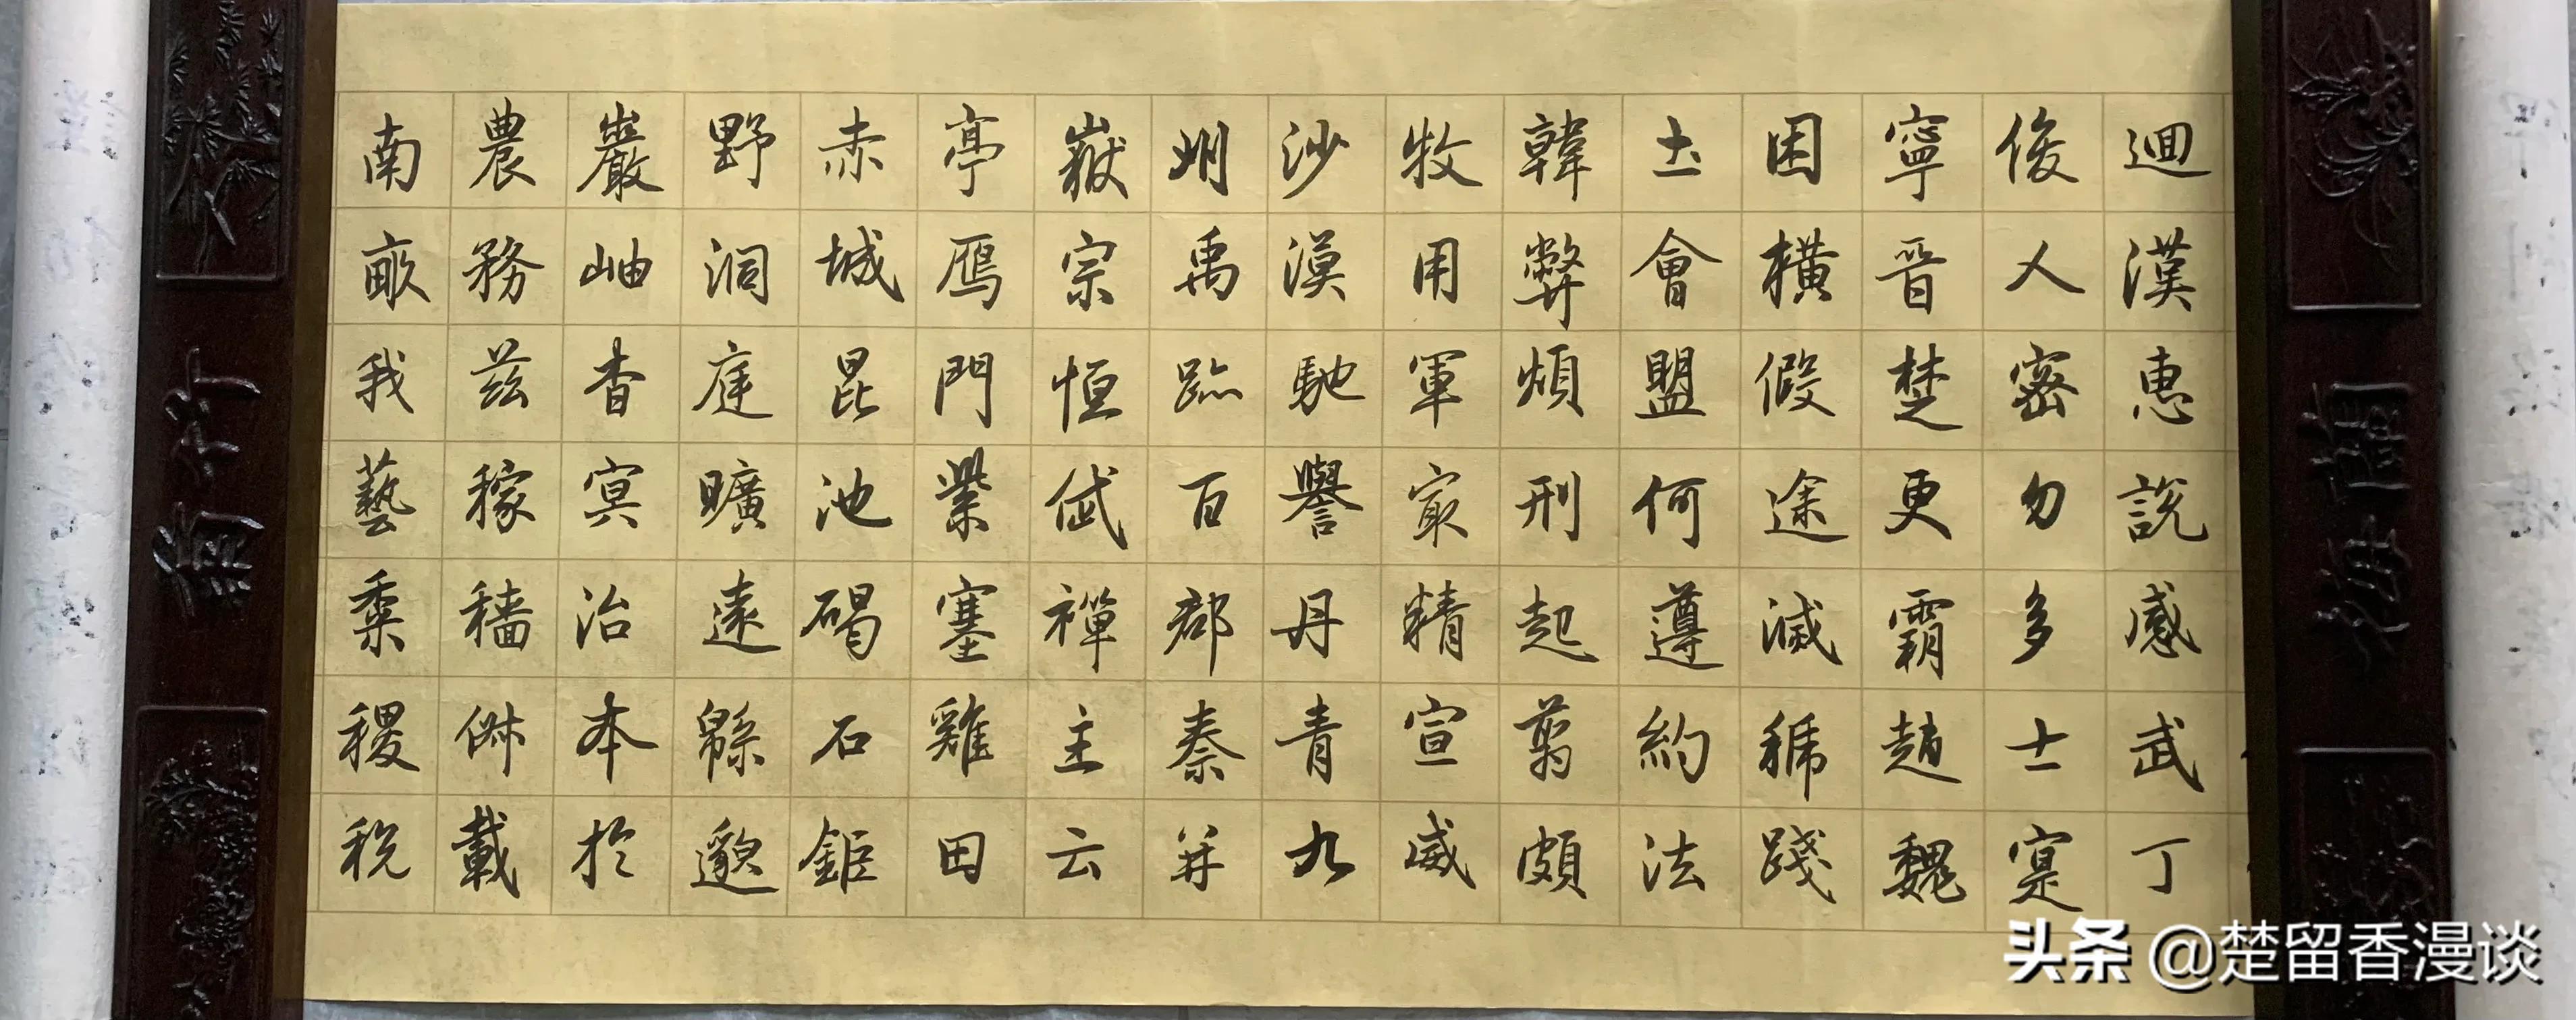 迴漢惠説感武丁
俊乂密勿多士寔
寧晉楚更霸趙魏
困橫假途滅虢踐
土會盟何遵約法
韓弊煩刑起翦頗
牧用軍最精宣威
沙漠馳譽丹青九
州禹跡百郡秦并
嶽宗恒岱禪主云
亭鴈門紫塞雞田
赤城昆池碣石鉅
野洞庭曠遠緜邈
巖岫杳冥治本於
農務茲稼穡俶載
南畝我藝黍稷税
蘭梅
竹菊
头条 @楚留香漫谈